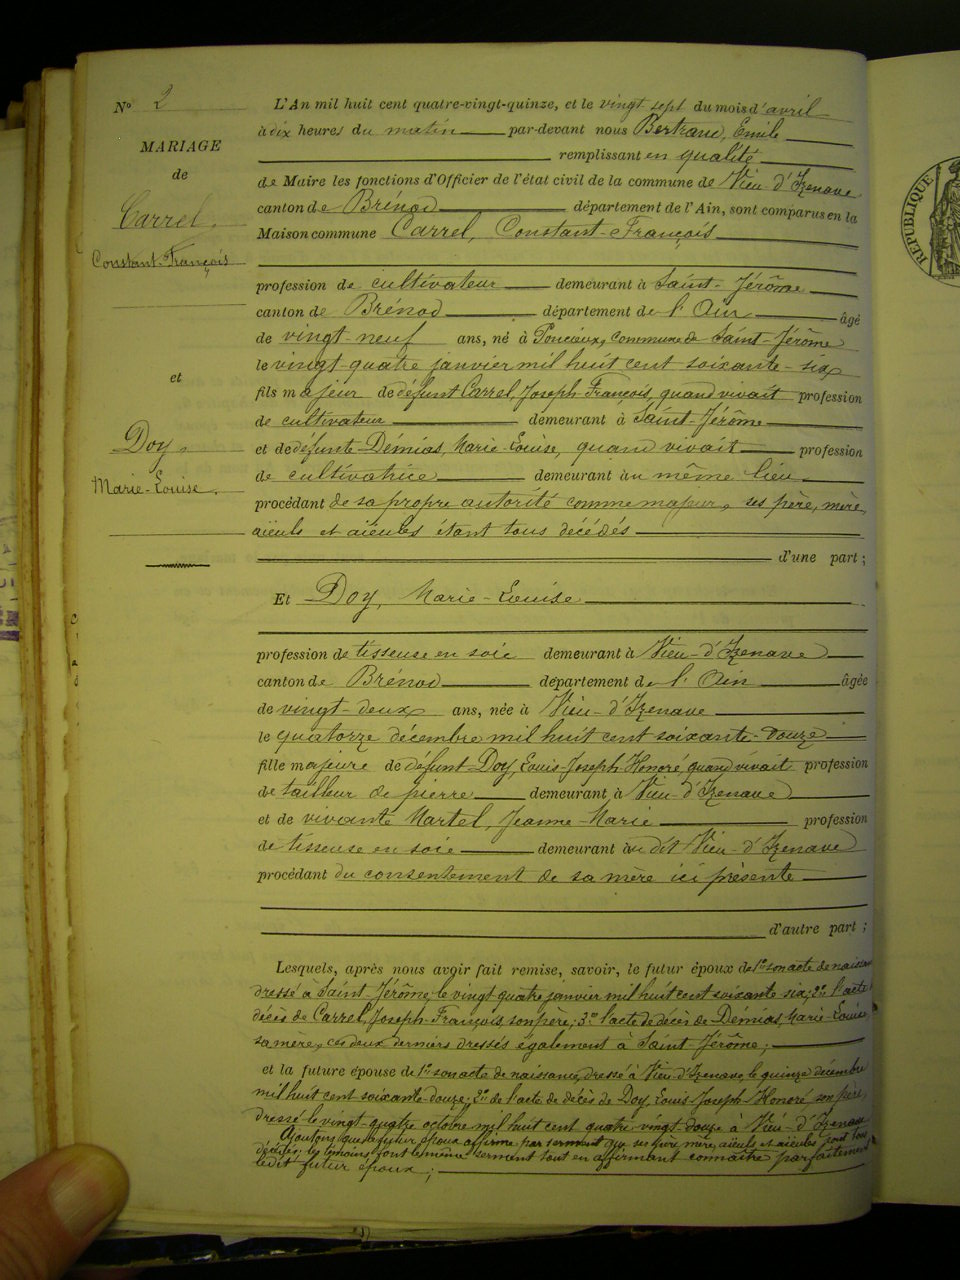 Nº 2
MARIAGE
de
Carrel,
Constant-François
et
Doy,
Marie-Louise.
L'An mil huit cent quatre-vingt-quinze, et le vingt sept du mois d'avril
à dix heures du matin par-devant nous Bertrand, Emile
remplissant en qualité
de Maire les fonctions d'Officier de l'état civil de la commune de Vieu-d'Izenave
canton de Brénod département de l'Ain, sont comparus en la
Maison commune Carrel, Constant-François
profession de cultivateur demeurant à Saint-Jérôme
canton de Brénod département de l'Ain âgé
de vingt-neuf ans, né à Poncieux, commune de Saint-Jérôme
le vingt-quatre janvier mil huit cent soixante-six
fils majeur de défunt Carrel, Joseph-François, quand vivait profession
de cultivateur demeurant à Saint-Jérôme
et de défunte Démias, Marie-Louise, quand vivait profession
de cultivatrice demeurant au même lieu
procédant de sa propre autorité comme majeur, ses père, mère,
aïeuls et aïeules étant tous décédés
d'une part ;
Et Doy, Marie-Louise
profession de tisseuse en soie demeurant à Vieu-d'Izenave
canton de Brénod département de l'Ain âgée
de vingt-deux ans, née à Vieu-d'Izenave
le quatorze décembre mil huit cent soixante-douze
fille majeure de défunt Doy, Louis-Joseph-Honoré, quand vivait profession
de tailleur de pierre demeurant à Vieu-d'Izenave
et de vivante Martel, Jeanne-Marie profession
de tisseuse en soie demeurant au dit Vieu-d'Izenave
procédant du consentement de sa mère ici présente
d'autre part ;
Lesquels, après nous avoir fait remise, savoir, le futur époux de 1º son acte de naissan
dressé à Saint-Jérôme, le vingt quatre janvier mil huit cent soixante-six; 2º l'acte
décès de Carrel, Joseph-François, son père; 3º l'acte de décès de Démias, Marie-Louise,
sa mère, ces deux derniers dressés également à Saint-Jérôme;
et la future épouse de 1º son acte de naissance, dressé à Vieu-d'Izenave, le quinze décembre
mil huit cent soixante-douze; 2º de l'acte de décès de Doy, Louis-Joseph-Honoré son père,
dressé le vingt-quatre octobre mil huit cent quatre vingt douze à Vieu-d'Izenave
Ajoutons que le futur époux affirme par serment que ses père, mère, aïeuls et aïeules sont tous
décédés; les témoins font le même serment tout en affirmant connaître parfaitement
ledit futur époux;
RÉPUBLIQUE